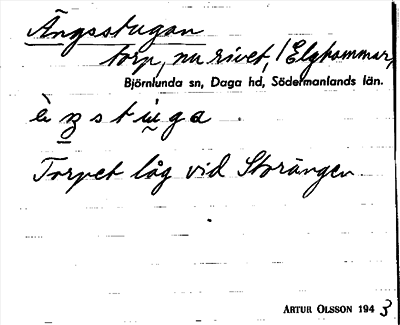 Ängsstugan
torp, nu rivet, / Elghammar,
Björnlunda sn, Daga hd, Södermanlands län.
Torpet låg vid Storängen
ARTUR OLSSON 1943